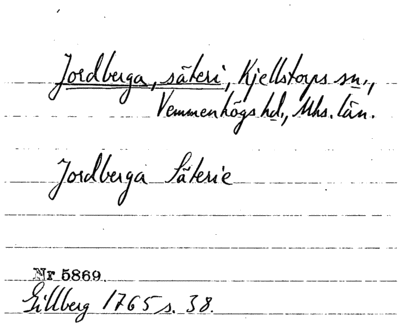 Jordberga, säteri, Kjellstorps sn.,
Vemmenhögs hd., Mhs. län.
Jordberga Säterie
Nr 5869.
Gillberg 1765 s. 38.